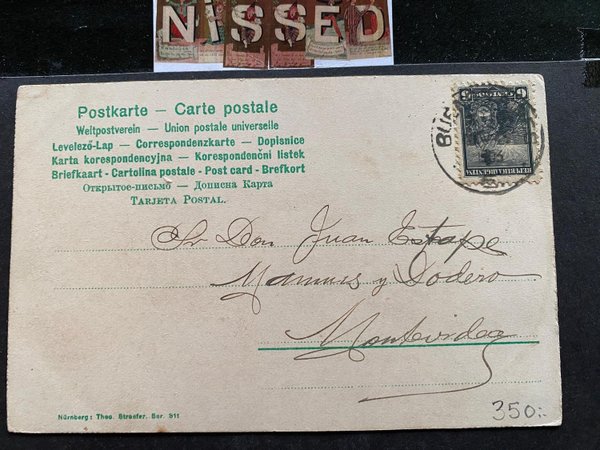 NISSED
Postkarte — Carte postale
Weltpostverein — Union postale universelle
Levelező-Lap — Correspondenzkarte — Dopisnice
Karta korespondencyjna — Korespondenční listek
Briefkaart - Cartolina postale - Post card - Brefkort
Открытое-письмо — Дописна Карта
TARJETA POSTAL.
REPUBLICA ARGENTINA
5
Sr Don Juan Estape
y Dodero
Montevideo
Nürnberg: Theo. Stroefer. Ser. 911
350:-